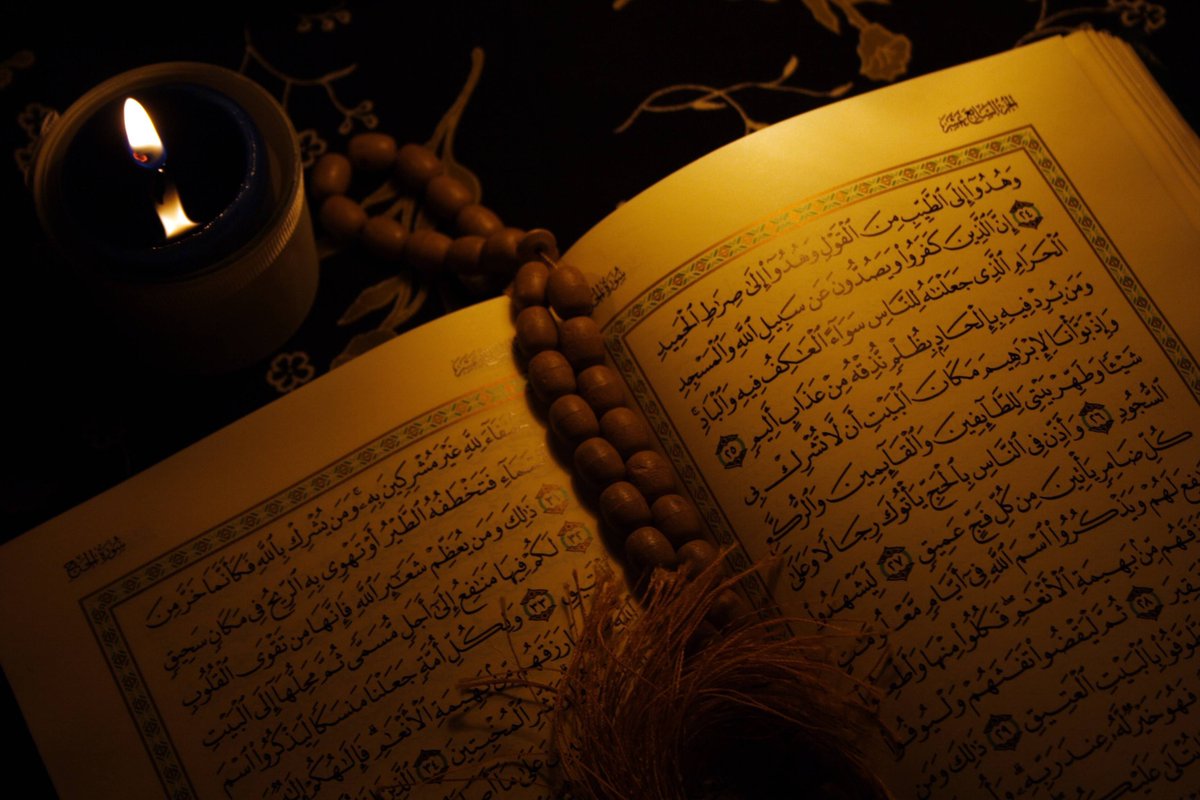 الجزء السابع عشر
وَهُدُوٓا۟ إِلَى ٱلطَّيِّبِ مِنَ ٱلْقَوْلِ وَهُدُوٓا۟ إِلَىٰ صِرَٰطِ ٱلْحَمِيدِ
٢٤ إِنَّ ٱلَّذِينَ كَفَرُوا۟ وَيَصُدُّونَ عَن سَبِيلِ ٱللَّهِ وَٱلْمَسْجِدِ
ٱلْحَرَامِ ٱلَّذِى جَعَلْنَٰهُ لِلنَّاسِ سَوَآءً ٱلْعَٰكِفُ فِيهِ وَٱلْبَادِ
وَمَن يُرِدْ فِيهِ بِإِلْحَادٍۭ بِظُلْمٍ نُّذِقْهُ مِنْ عَذَابٍ أَلِيمٍ ٢٥
وَإِذْ بَوَّأْنَا لِإِبْرَٰهِيمَ مَكَانَ ٱلْبَيْتِ أَن لَّا تُشْرِكْ بِى
شَيْـًٔا وَطَهِّرْ بَيْتِىَ لِلطَّآئِفِينَ وَٱلْقَآئِمِينَ وَٱلرُّكَّعِ
ٱلسُّجُودِ ٢٦ وَأَذِّن فِى ٱلنَّاسِ بِٱلْحَجِّ يَأْتُوكَ رِجَالًا وَعَلَىٰ
كُلِّ ضَامِرٍ يَأْتِينَ مِن كُلِّ فَجٍّ عَمِيقٍ ٢٧ لِّيَشْهَدُوا۟
لَهُمْ وَيَذْكُرُوا۟ ٱسْمَ ٱللَّهِ فِىٓ أَيَّامٍ
مِّنۢ بَهِيمَةِ ٱلْأَنْعَٰمِ فَكُلُوا۟ مِنْهَا
٢٨ ثُمَّ لْيَقْضُوا۟ تَفَثَهُمْ وَلْيُوفُوا۟
بِٱلْبَيْتِ ٱلْعَتِيقِ ٢٩ ذَٰلِكَ وَمَن
خَيْرٌ لَّهُۥ عِندَ رَبِّهِۦ
سورة الحج
لِلَّهِ غَيْرَ مُشْرِكِينَ بِهِۦ وَمَن يُشْرِكْ بِٱللَّهِ فَكَأَنَّمَا خَرَّ مِنَ
فَتَخْطَفُهُ ٱلطَّيْرُ أَوْ تَهْوِى بِهِ ٱلرِّيحُ فِى مَكَانٍ سَحِيقٍ
٣١ ذَٰلِكَ وَمَن يُعَظِّمْ شَعَٰٓئِرَ ٱللَّهِ فَإِنَّهَا مِن تَقْوَى ٱلْقُلُوبِ
٣٢ لَكُمْ فِيهَا مَنَٰفِعُ إِلَىٰٓ أَجَلٍ مُّسَمًّى ثُمَّ مَحِلُّهَآ إِلَى ٱلْبَيْتِ
٣٣ وَلِكُلِّ أُمَّةٍ جَعَلْنَا مَنسَكًا لِّيَذْكُرُوا۟ ٱسْمَ
بَهِيمَةِ ٱلْأَنْعَٰمِ فَإِلَٰهُكُمْ
ٱلْمُخْبِتِينَ ٣٤ ٱلَّذِينَ